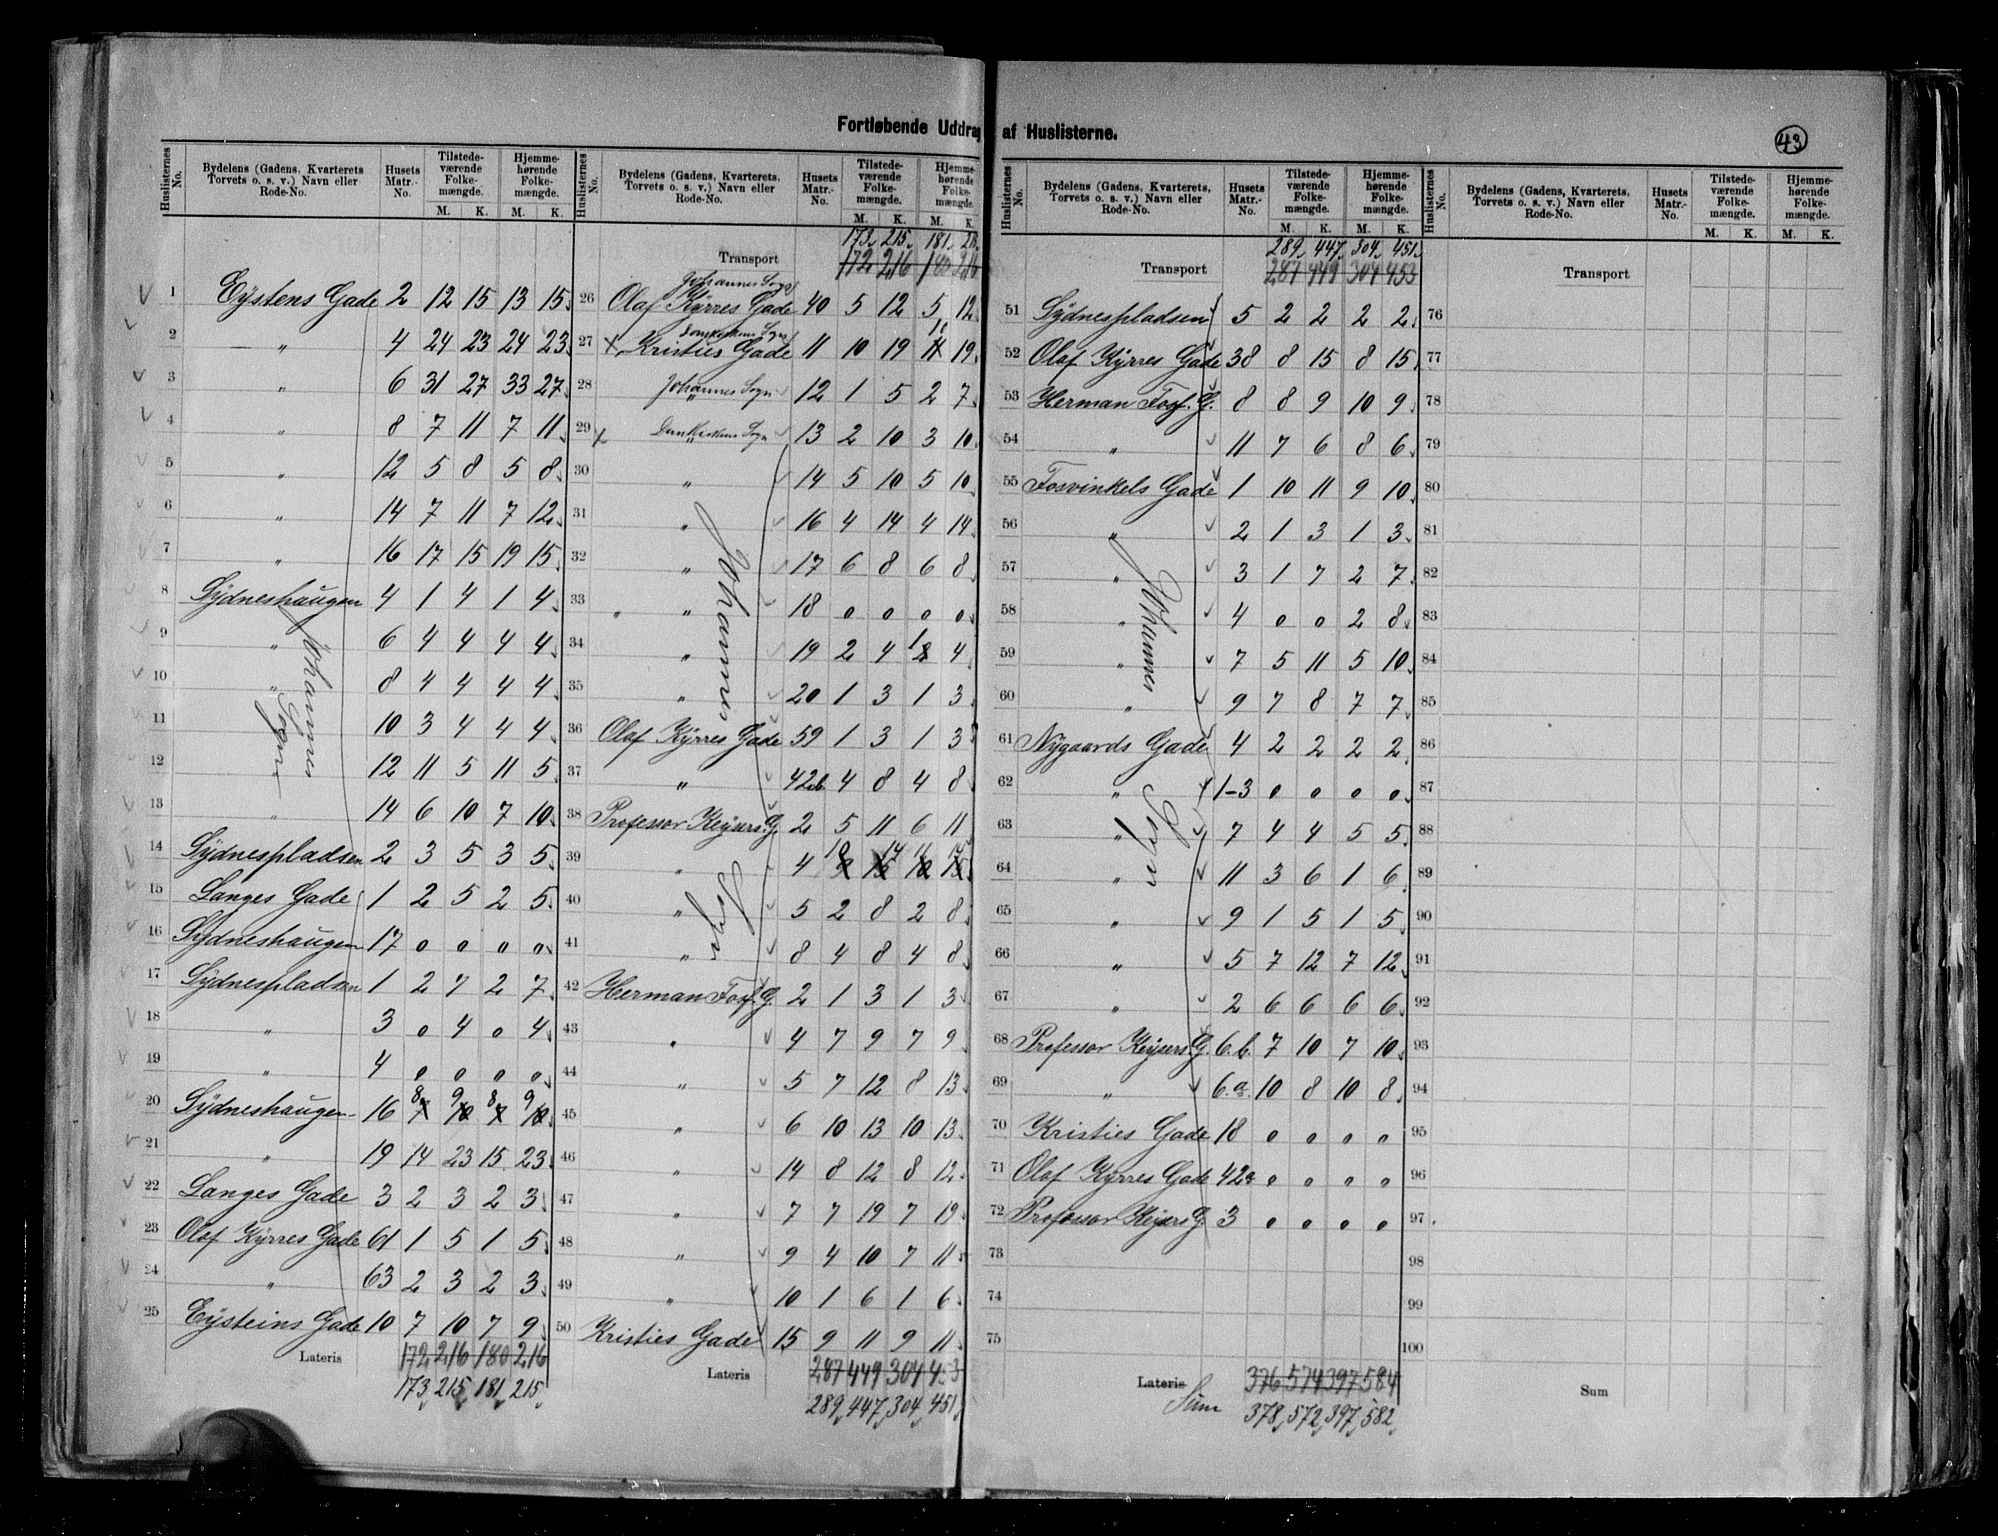 Fortløbende Uddrag af Huslisterne.
43
Huslisternes No. | Bydelens (Gadens, Kvarterets Torvets o. s. v.) Navn eller Rode-No. | Husets Matr.-No. | Tilstedeværende Folkemængde. M. K. | Hjemmehørende Folkemængde. M. K.
1 Eystens Gade 2 12 15 13 15
2 " 4 24 23 24 23
3 " 6 31 27 33 27
4 " 8 7 11 7 11
5 " 12 5 8 5 8
6 " 14 7 11 7 12
7 " 16 17 15 19 15
8 Sydneshaugen 4 1 4 1 4
9 " 6 4 4 4 4
10 " 8 4 4 4 4
11 " 10 3 4 4 4
12 " 12 11 5 11 5
13 " 14 6 10 7 10
Johannes Sogn
14 Sydnespladsen 2 3 5 3 5
15 Langes Gade 1 2 5 2 5
16 Sydneshaugen 17 0 0 0 0
17 Sydnespladsen 1 2 7 2 7
18 " 3 0 4 0 4
19 " 4 0 0 0 0
20 Sydneshaugen 16 8 9 8 9
21 " 19 14 23 15 23
22 Langes Gade 3 2 3 2 3
23 Olaf Kyrres Gade 61 1 5 1 5
24 " 63 2 3 2 3
25 Eysteins Gade 10 7 10 7 9
Lateris 172 216 180 216
173 215 181 215
Huslisternes No. | Bydelens (Gadens, Kvarterets, Torvets o. s. v.) Navn eller Rode-No. | Husets Matr.-No. | Tilstedeværende Folkemængde. M. K. | Hjemmehørende Folkemængde. M. K.
173 215 181
Transport 172 216
Johannes Sogn
26 Olaf Kyrres Gade 40 5 12 5 12
Domkirkens Sogn
27 Kristies Gade 11 10 19 10 19
28 Johannes Sogn 12 1 5 2 7
29 Domkirkens Sogn 13 2 10 3 10
30 " 14 5 10 5 10
31 " 16 4 14 4 14
32 " 17 6 8 6 8
33 " " 18 0 0 0 0
34 " 19 2 4 1 4
35 " 20 1 3 1 3
36 Olaf Kyrres Gade 59 1 3 1 3
37 " 42b 4 8 4 8
38 Professor Keysers G. 2 5 11 6 11
39 " 4 10 14 11
40 " 5 2 8 2 8
41 " 8 4 8 4 8
Johannes Sogn
42 Herman Fosf. G. 2 1 3 1 3
43 " 4 7 9 7 9
44 " 5 7 12 8 13
45 " 6 10 13 10 13
46 " 14 8 12 8 12
47 " 7 7 19 7 19
48 " 9 4 10 7 11
49 " 10 1 6 1 6
50 Kristies Gade 15 9 11 9 11
Lateris 287 449 304 453
289 447 304 451
Huslisternes No. | Bydelens (Gadens, Kvarterets, Torvets o. s. v.) Navn eller Rode-No. | Husets Matr.-No. | Tilstedeværende Folkemængde. M. K. | Hjemmehørende Folkemængde. M. K.
289 447 304 451
Transport 287 449 304 453
51 Sydnespladsen 5 2 2 2 2
52 Olaf Kyrres Gade 38 8 15 8 15
53 Herman Fosf. G. 8 8 9 10 9
54 " 11 7 6 8 6
55 Fosvinkels Gade 1 10 11 9 10
56 " 2 1 3 1 3
57 " 3 1 7 2 7
58 " 4 0 0 2 8
59 " 7 5 11 5 10
60 " 9 7 8 7 7
61 Nygaards Gade 4 2 2 2 2
62 " 1-3 0 0 0 0
63 " 7 4 4 5 5
64 " 11 3 6 1 6
65 " 9 1 5 1 5
66 " 5 7 12 7 12
67 " 2 6 6 6 6
Johannes Sogn
68 Professor Keysers G. 6.b. 7 10 7 10
69 " 6.a. 10 8 10 8
70 Kristies Gade 18 0 0 0 0
71 Olaf Kyrres Gade 42a 0 0 0 0
72 Professor Keysers G. 3 0 0 0 0
73
74
75
Lateris 376 574 397 584
Sum 378 572 397 582
Huslisternes No. | Bydelens (Gadens, Kvarterets, Torvets o. s. v.) Navn eller Rode-No. | Husets Matr.-No. | Tilstedeværende Folkemængde. M. K. | Hjemmehørende Folkemængde. M. K.
Transport
76
77
78
79
80
81
82
83
84
85
86
87
88
89
90
91
92
93
94
95
96
97
98
99
100
Sum